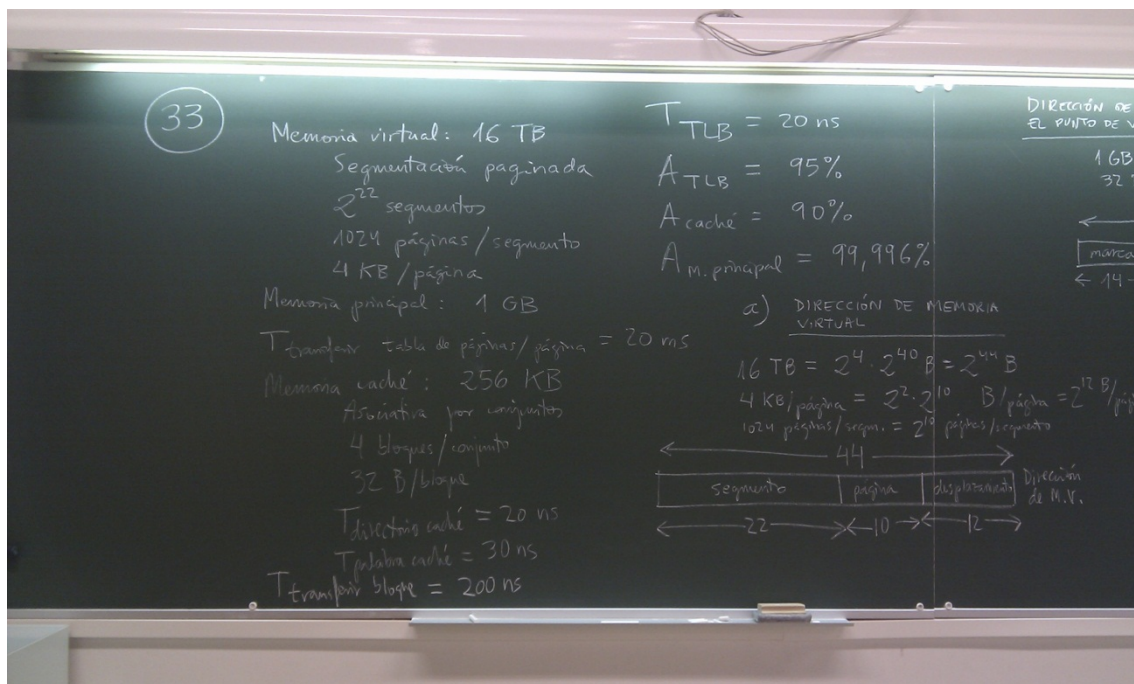 33
Memoria virtual: 16 TB
Segmentación paginada
2^22 segmentos
1024 páginas/segmento
4 KB/página
Memoria principal: 1 GB
T transferir tabla de páginas/página = 20 ms
Memoria caché: 256 KB
Asociativa por conjuntos
4 bloques/conjunto
32 B/bloque
T directorio caché = 20 ns
T palabra caché = 30 ns
T transferir bloque = 200 ns
T TLB = 20 ns
A TLB = 95%
A caché = 90%
A m. principal = 99,996%
a) DIRECCIÓN DE MEMORIA
VIRTUAL
16 TB = 2^4 · 2^40 B = 2^44 B
4 KB/página = 2^2 · 2^10 B/página = 2^12 B/pág
1024 páginas/segm. = 2^10 páginas/segmento
44
segmento página desplazamiento Dirección
de M.V.
22 10 12
DIRECCIÓN DE
EL PUNTO DE V
1 GB
32
marca
14